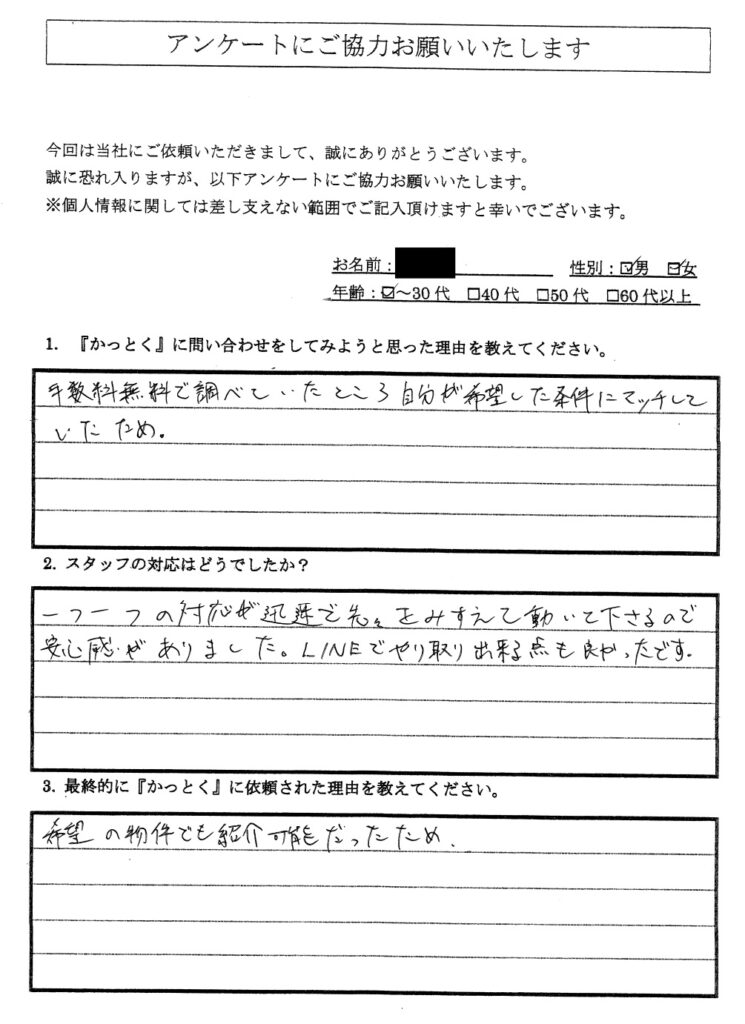 アンケートにご協力お願いいたします
今回は当社にご依頼いただきまして、誠にありがとうございます。
誠に恐れ入りますが、以下アンケートにご協力お願いいたします。
※個人情報に関しては差し支えない範囲でご記入頂けますと幸いでございます。
お名前： 性別：☑男 ☑女
年齢：☑～30代 □40代 □50代 □60代以上
1. 『かっとく』に問い合わせをしてみようと思った理由を教えてください。
手数料無料で調べていたところ自分が希望した条件にマッチして
いたため。
2. スタッフの対応はどうでしたか？
一つ一つの対応が迅速で先々をみすえて動いて下さるので
安心感がありました。LINEでやり取り出来る点も良かったです。
3. 最終的に『かっとく』に依頼された理由を教えてください。
希望の物件でも紹介可能だったため.